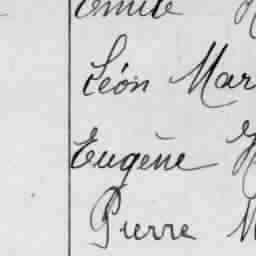 Emile
Léon Mar
Eugène
Pierre M